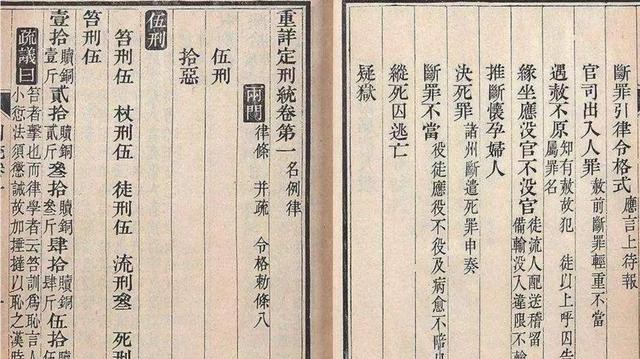 斷罪引律令格式 應言上待報
官司出入人罪 赦前斷罪輕重不當
遇赦不原 知有赦故犯 徒以上呼囚告
屬罪名
緣坐應没官不没官 徒流人配送稽留
備輸没入違限不
推斷懷孕婦人
決死罪 諸州斷遣死罪申奏
斷罪不當 役徒應役不役及病愈不
縱死囚逃亡
疑獄
重詳定刑統卷第一 名例律
兩門 律條 并疏 令格勅條八
伍刑
拾惡
伍刑
笞刑伍 杖刑伍 徒刑伍 流刑叄 死刑
笞刑伍
壹拾 贖銅壹斤 貳拾 贖銅貳斤 叄拾 贖銅叄斤 肆拾 贖銅肆斤 伍拾 贖銅
疏議曰 笞者擊也而律學者云笞訓爲恥言人
小愆法須懲誡故加捶撻以恥之漢時